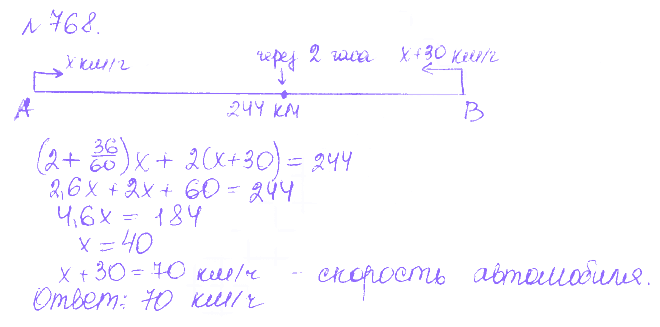 №768.
x км/ч
через 2 часа
x+30 км/ч
A
244 км
B
(2+36/60)x + 2(x+30) = 244
2,6x + 2x + 60 = 244
4,6x = 184
x = 40
x+30 = 70 км/ч - скорость автомобиля.
Ответ: 70 км/ч